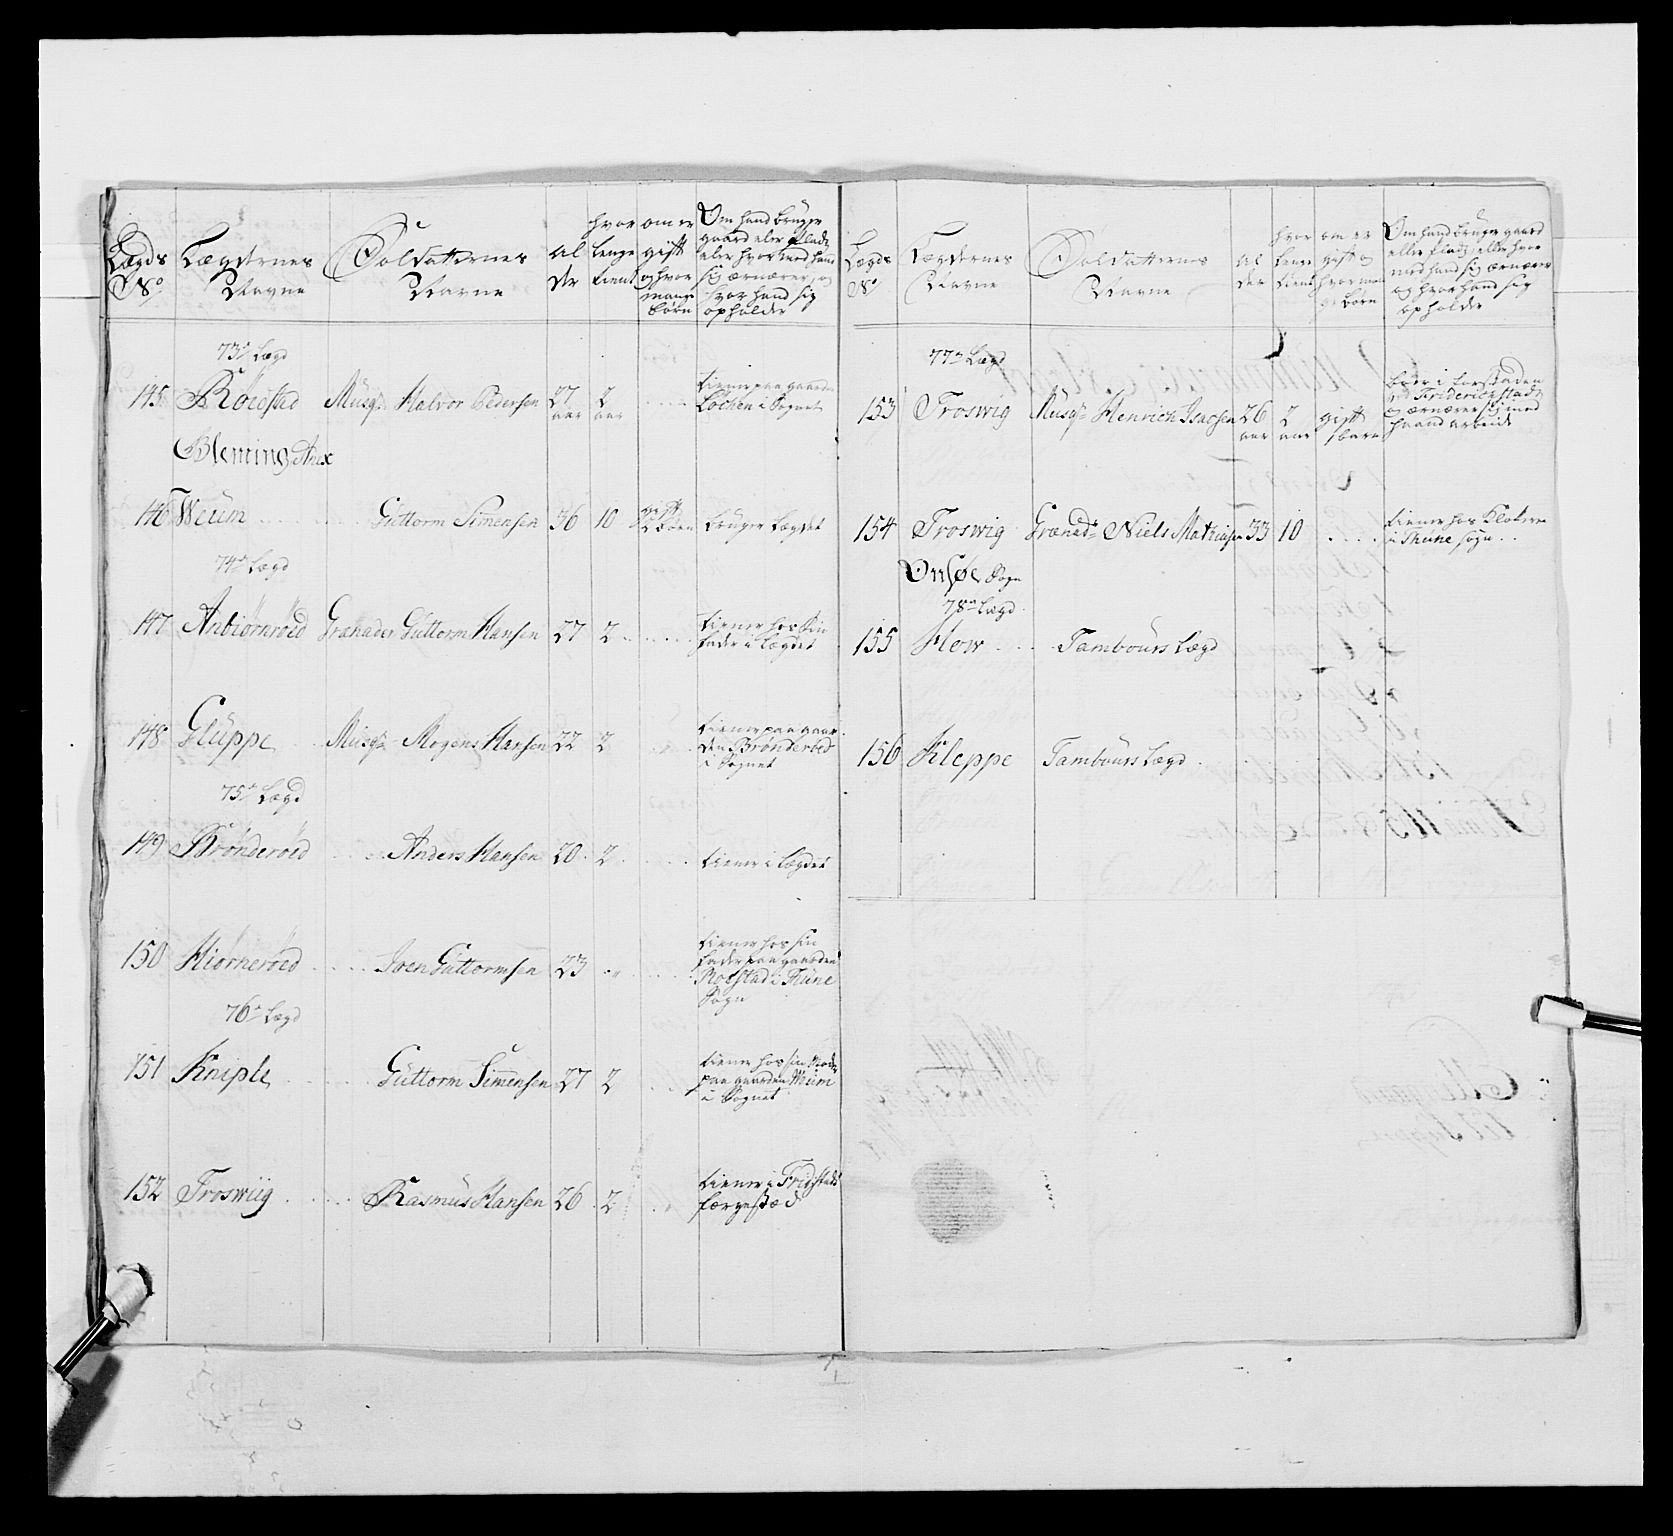 Lægds No
Lægdernes Navne
Soldatternes Navne
Al der
hvor lenge tient
om er gift og hvor mange börn
Om hand bruger
gaard eler Plads
eler hvor med hand
sig ærnærer, og
hvor hand sig
opholder
73de Lægd
145 Roldstad Musqr Halvor Pedersen 27 aar 2 aar tiener paa gaarden
Lochen i Sognet
Gleming Anex
146 Weum Guttorm Simensen 36 10 gift 2 börn bruger Lægdet
74de Lægd
147 Anbiörnröed Granader Guttorm Hansen 27 2 tiener hos Sin
fader i Lægdet
148 Gluppe Musqr Mogens Hansen 22 2 tiener paa gaar
den Brönderöed
i Sognet
75de Lægd
149 Brönderöed Anders Hansen 20 2 tiener i Lægdet
150 Hiörneröed Joen Guttormsen 23 tiener hos sin
fader paa gaarden
Rolstad i Thune
Sogn
76de Lægd
151 Kniple Guttorm Simensen 27 2 tiener hos sin
paa gaarden Weum
i Sognet
152 Troswiig Rasmus Hansen 26 2 tiener i Fridrstads
færgestæd
Lægds No
Lægdernes Navne
Soldatternes Navne
Al der
hvor lenge tient
om er gift og hvor mange börn
Om hand bruger gaard
eller Plads, eller hvor
med hand sig ærnærer
og hvor hand sig
opholder
77de Lægd
153 Troswig Musqr Henrich Isacsen 26 aar 2 aar gift 1 barn boer i forstaden
ved Friderichstad
og ærnærer sig med
haand arbeide
154 Troswig Grænadr Niels Mathiasen 33 10 tiener hos Klokeren
i Thune sogn
Onsöe Sogn
78de Lægd
155 How Tambours Lægd
156 Kleppe Tambours Lægd